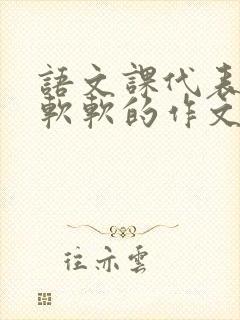 語文課代表
軟軟的作文
往亦雲